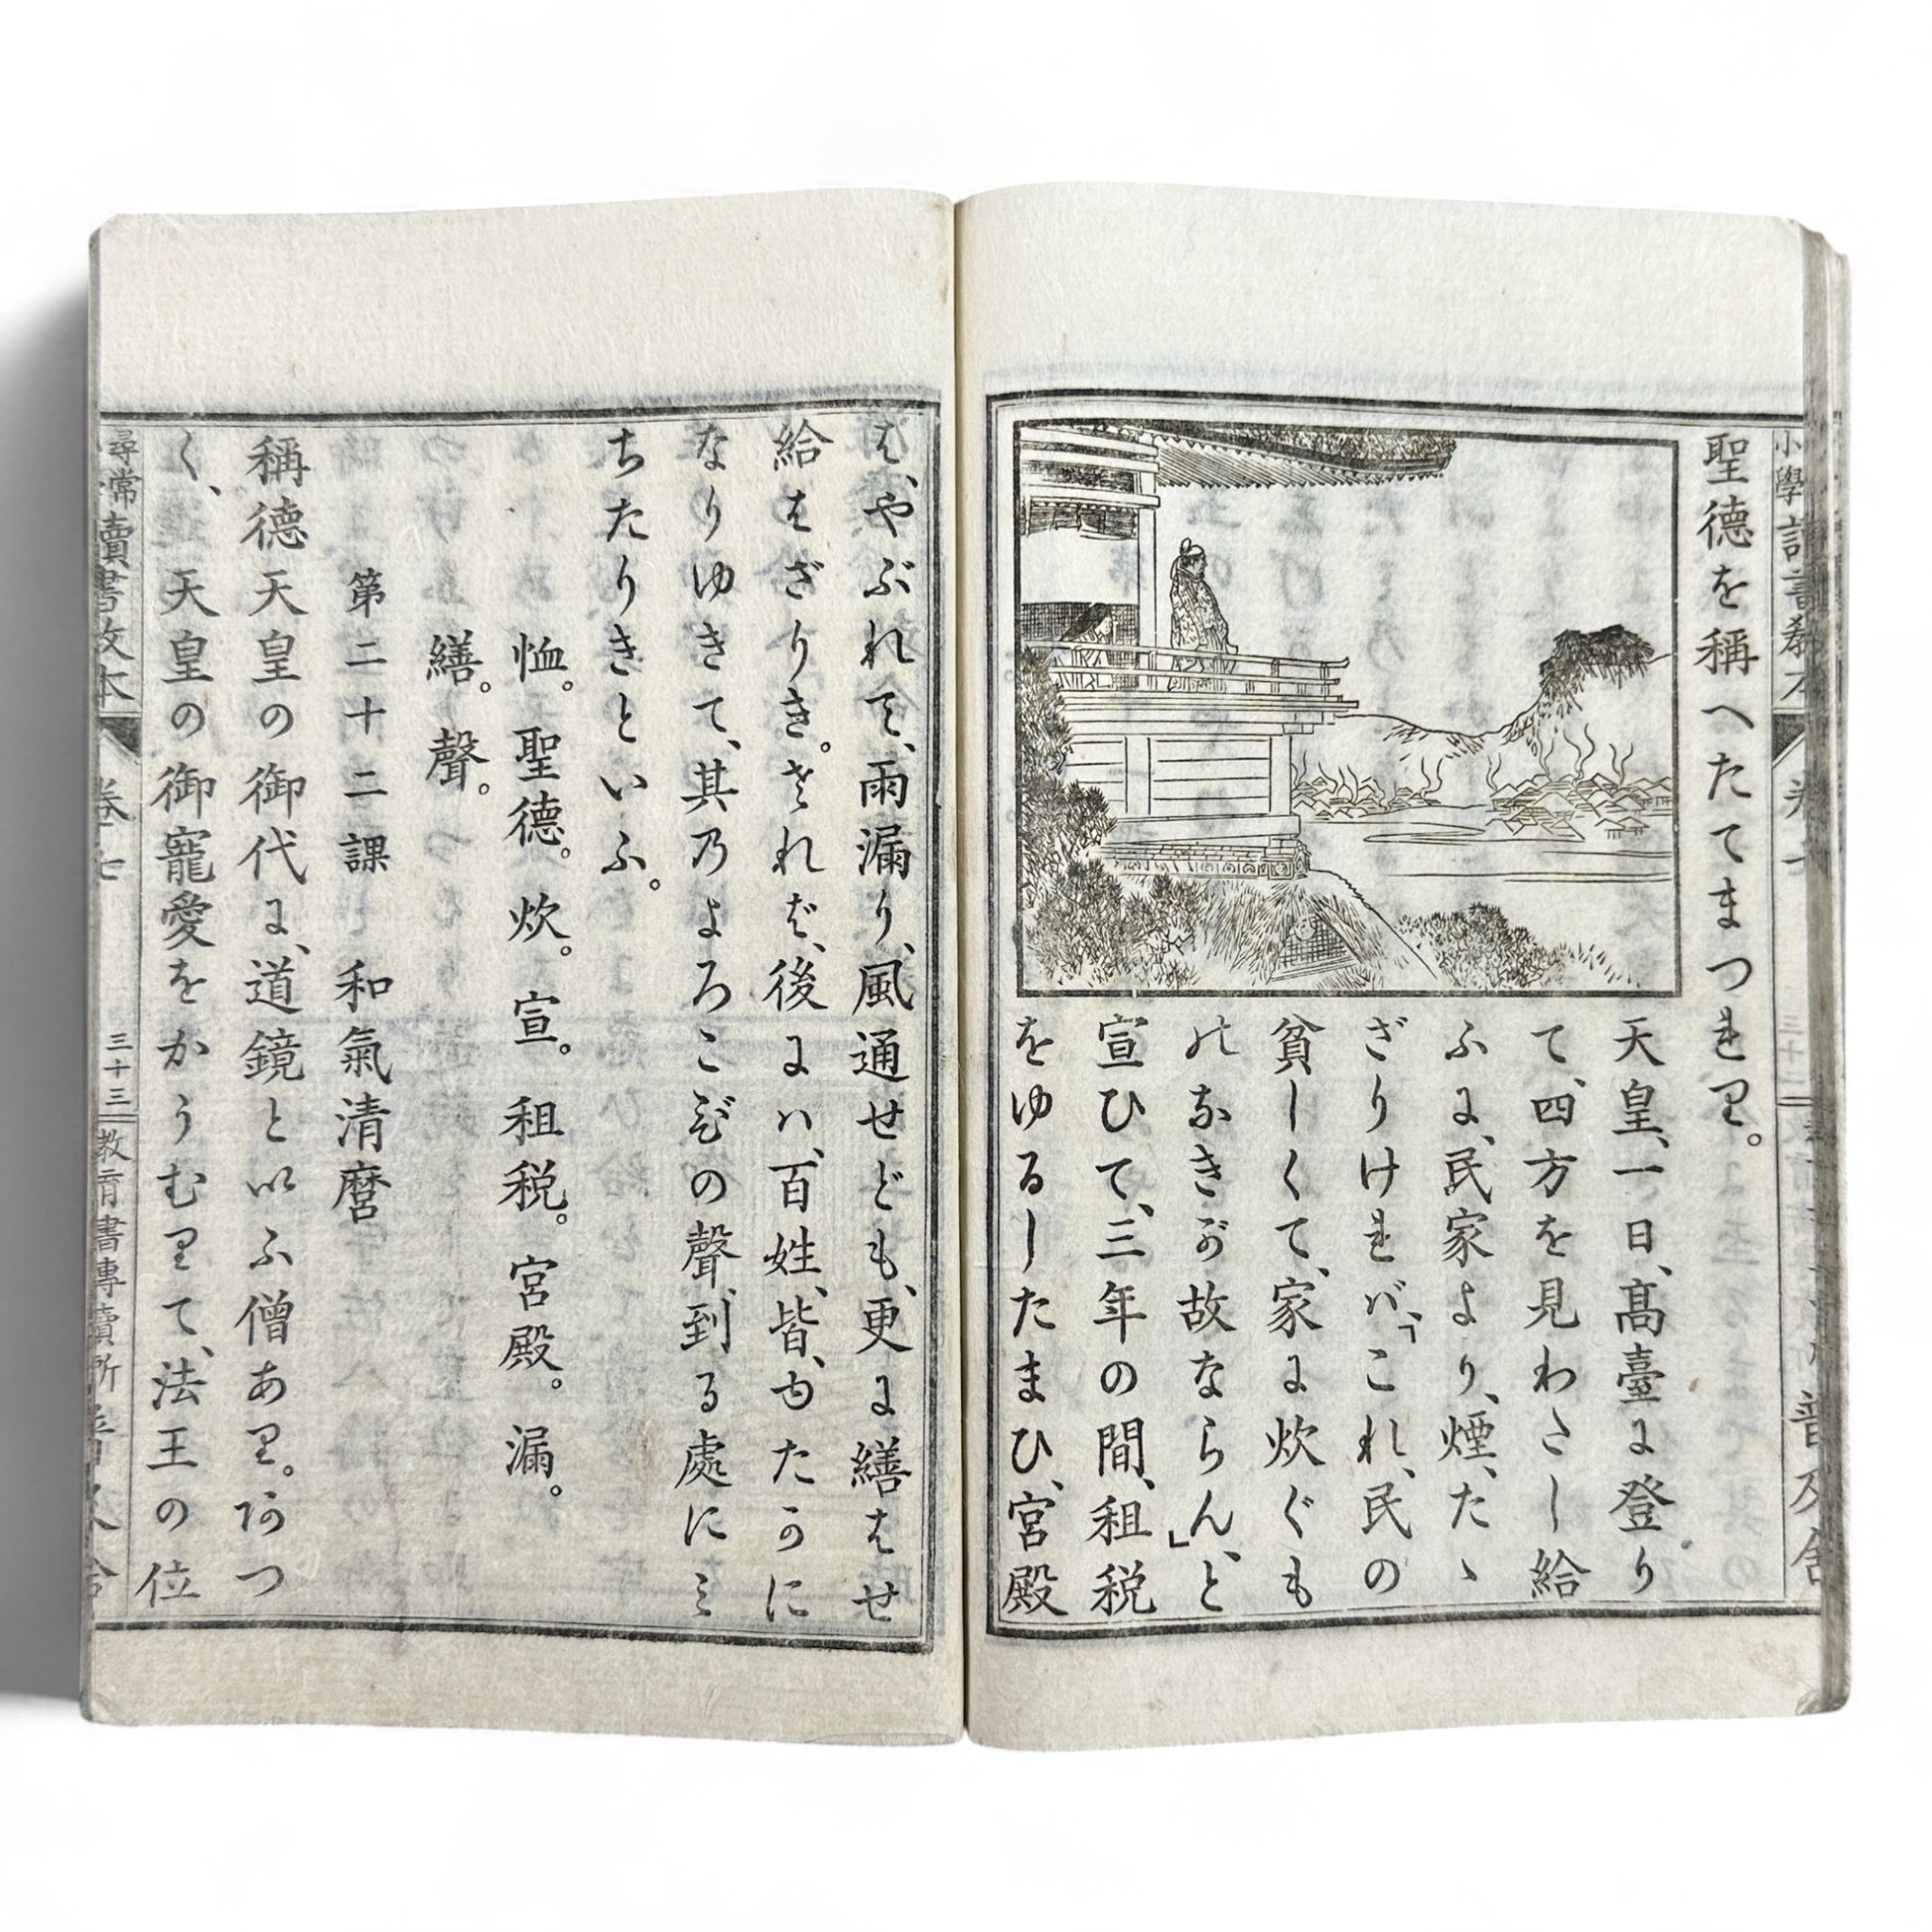 聖德を稱へたてまつれり。
天皇、一日、髙臺に登り
て、四方を見わたし給
ふに、民家より、煙、たゝ
ざりければ、「これ、民の
貧しくて、家に炊ぐも
のなきが故ならん、」と
宣ひて、三年の間、租税
をゆるしたまひ、宮殿
は、やぶれて、雨漏り、風通せども、更に繕はせ
給はざりき。されば、後には、百姓、皆、ゆたかに
なりゆきて、其乃よろこびの聲、到る處にみ
ちたりきといふ。
恤。聖德。炊。宣。租税。宮殿。漏。
繕。聲。
第二十二課 和氣清麿
稱德天皇の御代に、道鏡といふ僧あり。あつ
く、天皇の御寵愛をかうむりて、法王の位
尋常讀書教本 卷七 三十三 教育書專賣所 普及舍